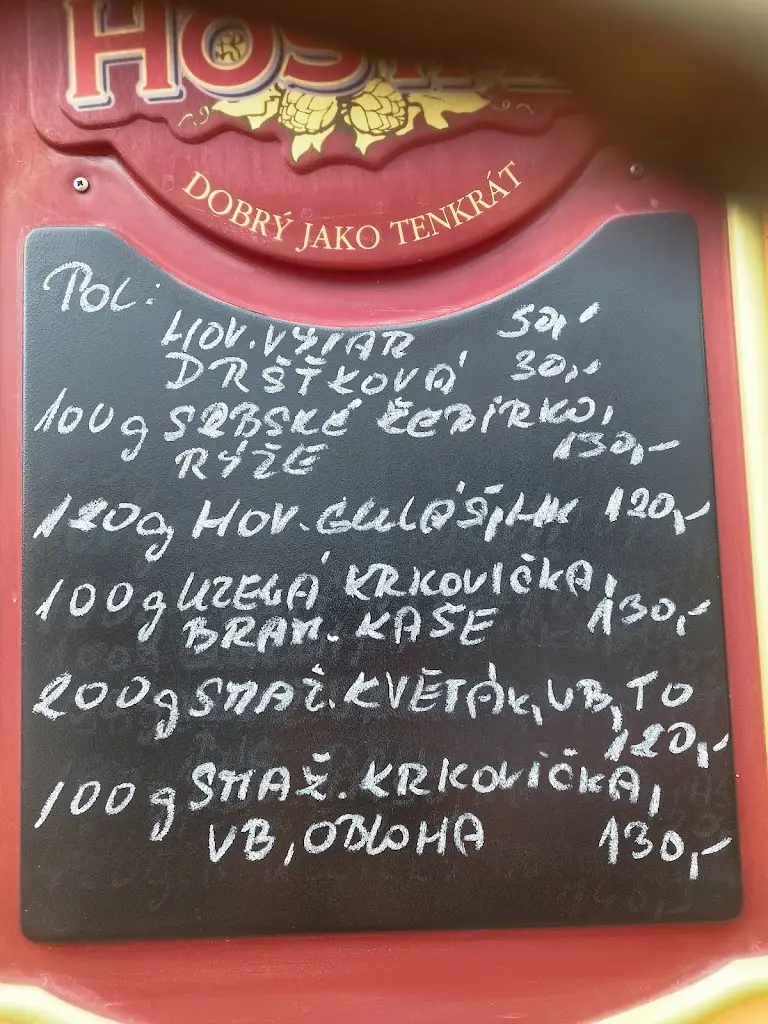 DOBRÝ JAKO TENKRÁT
POL:
HOV. VÝVAR 50,-
DRŠŤKOVÁ 30,-
100g SRBSKÉ ŽEBÍRKO,
RÝŽE 130,-
120g HOV. GULÁŠ, HK 120,-
100g UZENÁ KRKOVIČKA,
BRAM. KAŠE 130,-
200g SMAŽ. KVĚTÁK, VB, TO
120,-
100g SMAŽ. KRKOVIČKA,
VB, OBLOHA 130,-